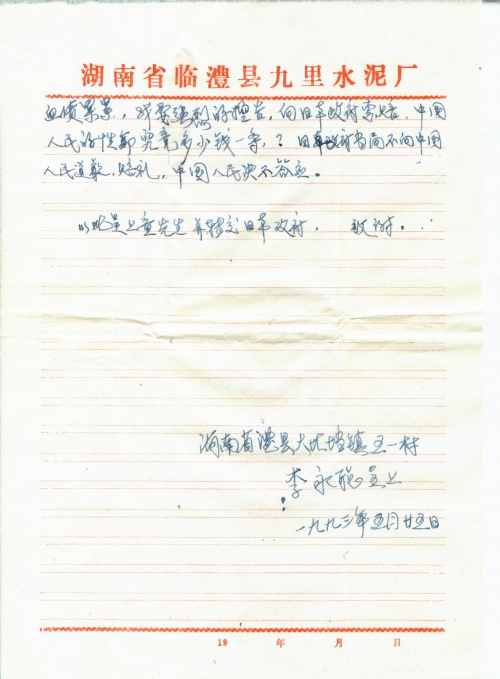 湖南省临澧县九里水泥厂
血债累累，我要强烈的控告，向日本政府索赔，中国
人民的性命究竟多少钱一条，？日本政府当局不向中国
人民道歉，赔礼，中国人民决不答应。
以此呈上童先生并转交日本政府． 致谢。
湖南省澧县大堰垱镇五一村
李永聪呈上
一九九三年五月廿五日
19 年 月 日